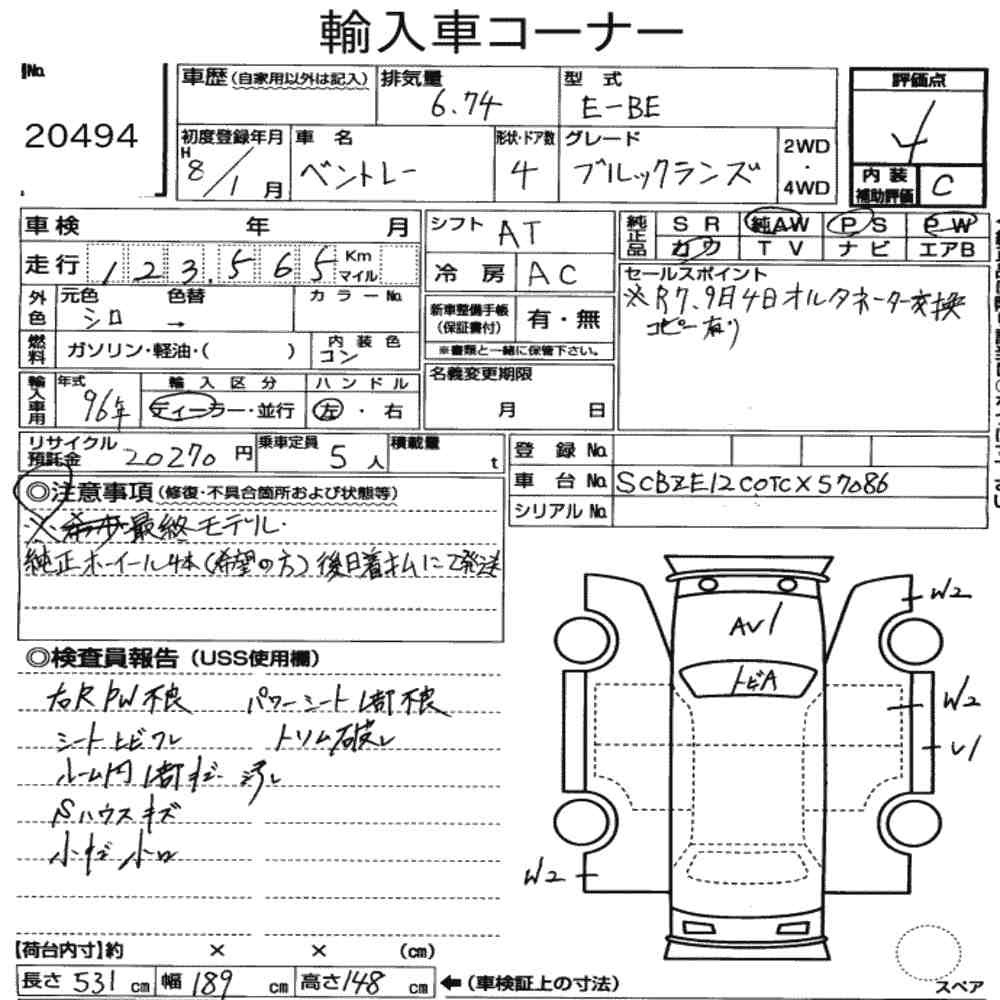 輸入車コーナー
No. 20494
車歴(自家用以外は記入) 排気量 6.74 型式 E-BE
初度登録年月 H 8/1月 車名 ベントレー 形状・ドア数 4 グレード ブルックランズ 2WD・4WD
評価点 4
内装補助評価 C
車検 年 月
走行 123,565 Km マイル
外色 元色 シロ 色替 → カラーNo.
燃料 ガソリン・軽油・( ) 内装色 コン
輸入車用 年式 96年 輸入区分 ディーラー・並行 ハンドル 左・右
シフト AT
冷房 AC
新車整備手帳(保証書付) 有・無
※書類と一緒に保管下さい。
名義変更期限 月 日
純正品 SR 純AW PS PW
カワ TV ナビ エアB
セールスポイント
※R7.9月4日オルタネーター交換
コピー有り
リサイクル預託金 20270円 乗車定員 5人 積載量 t
登録No.
車台No. SCBZE12C0TCX57086
シリアルNo.
◎注意事項(修復・不具合箇所および状態等)
※ 最終モデル.
純正ホイール4本(希望の方)後日着払にて発送
◎検査員報告(USS使用欄)
右RPW不良 パワーシート1部不良
シートヒビワレ トリム破レ
ルーム内1部キズ 汚レ
Sハウスキズ
小キズ 小凹
AV1
トビA
W2
W2
V1
W2
スペア
【荷台内寸】約 × × (cm)
長さ 531 cm 幅 189 cm 高さ 148 cm ←(車検証上の寸法)